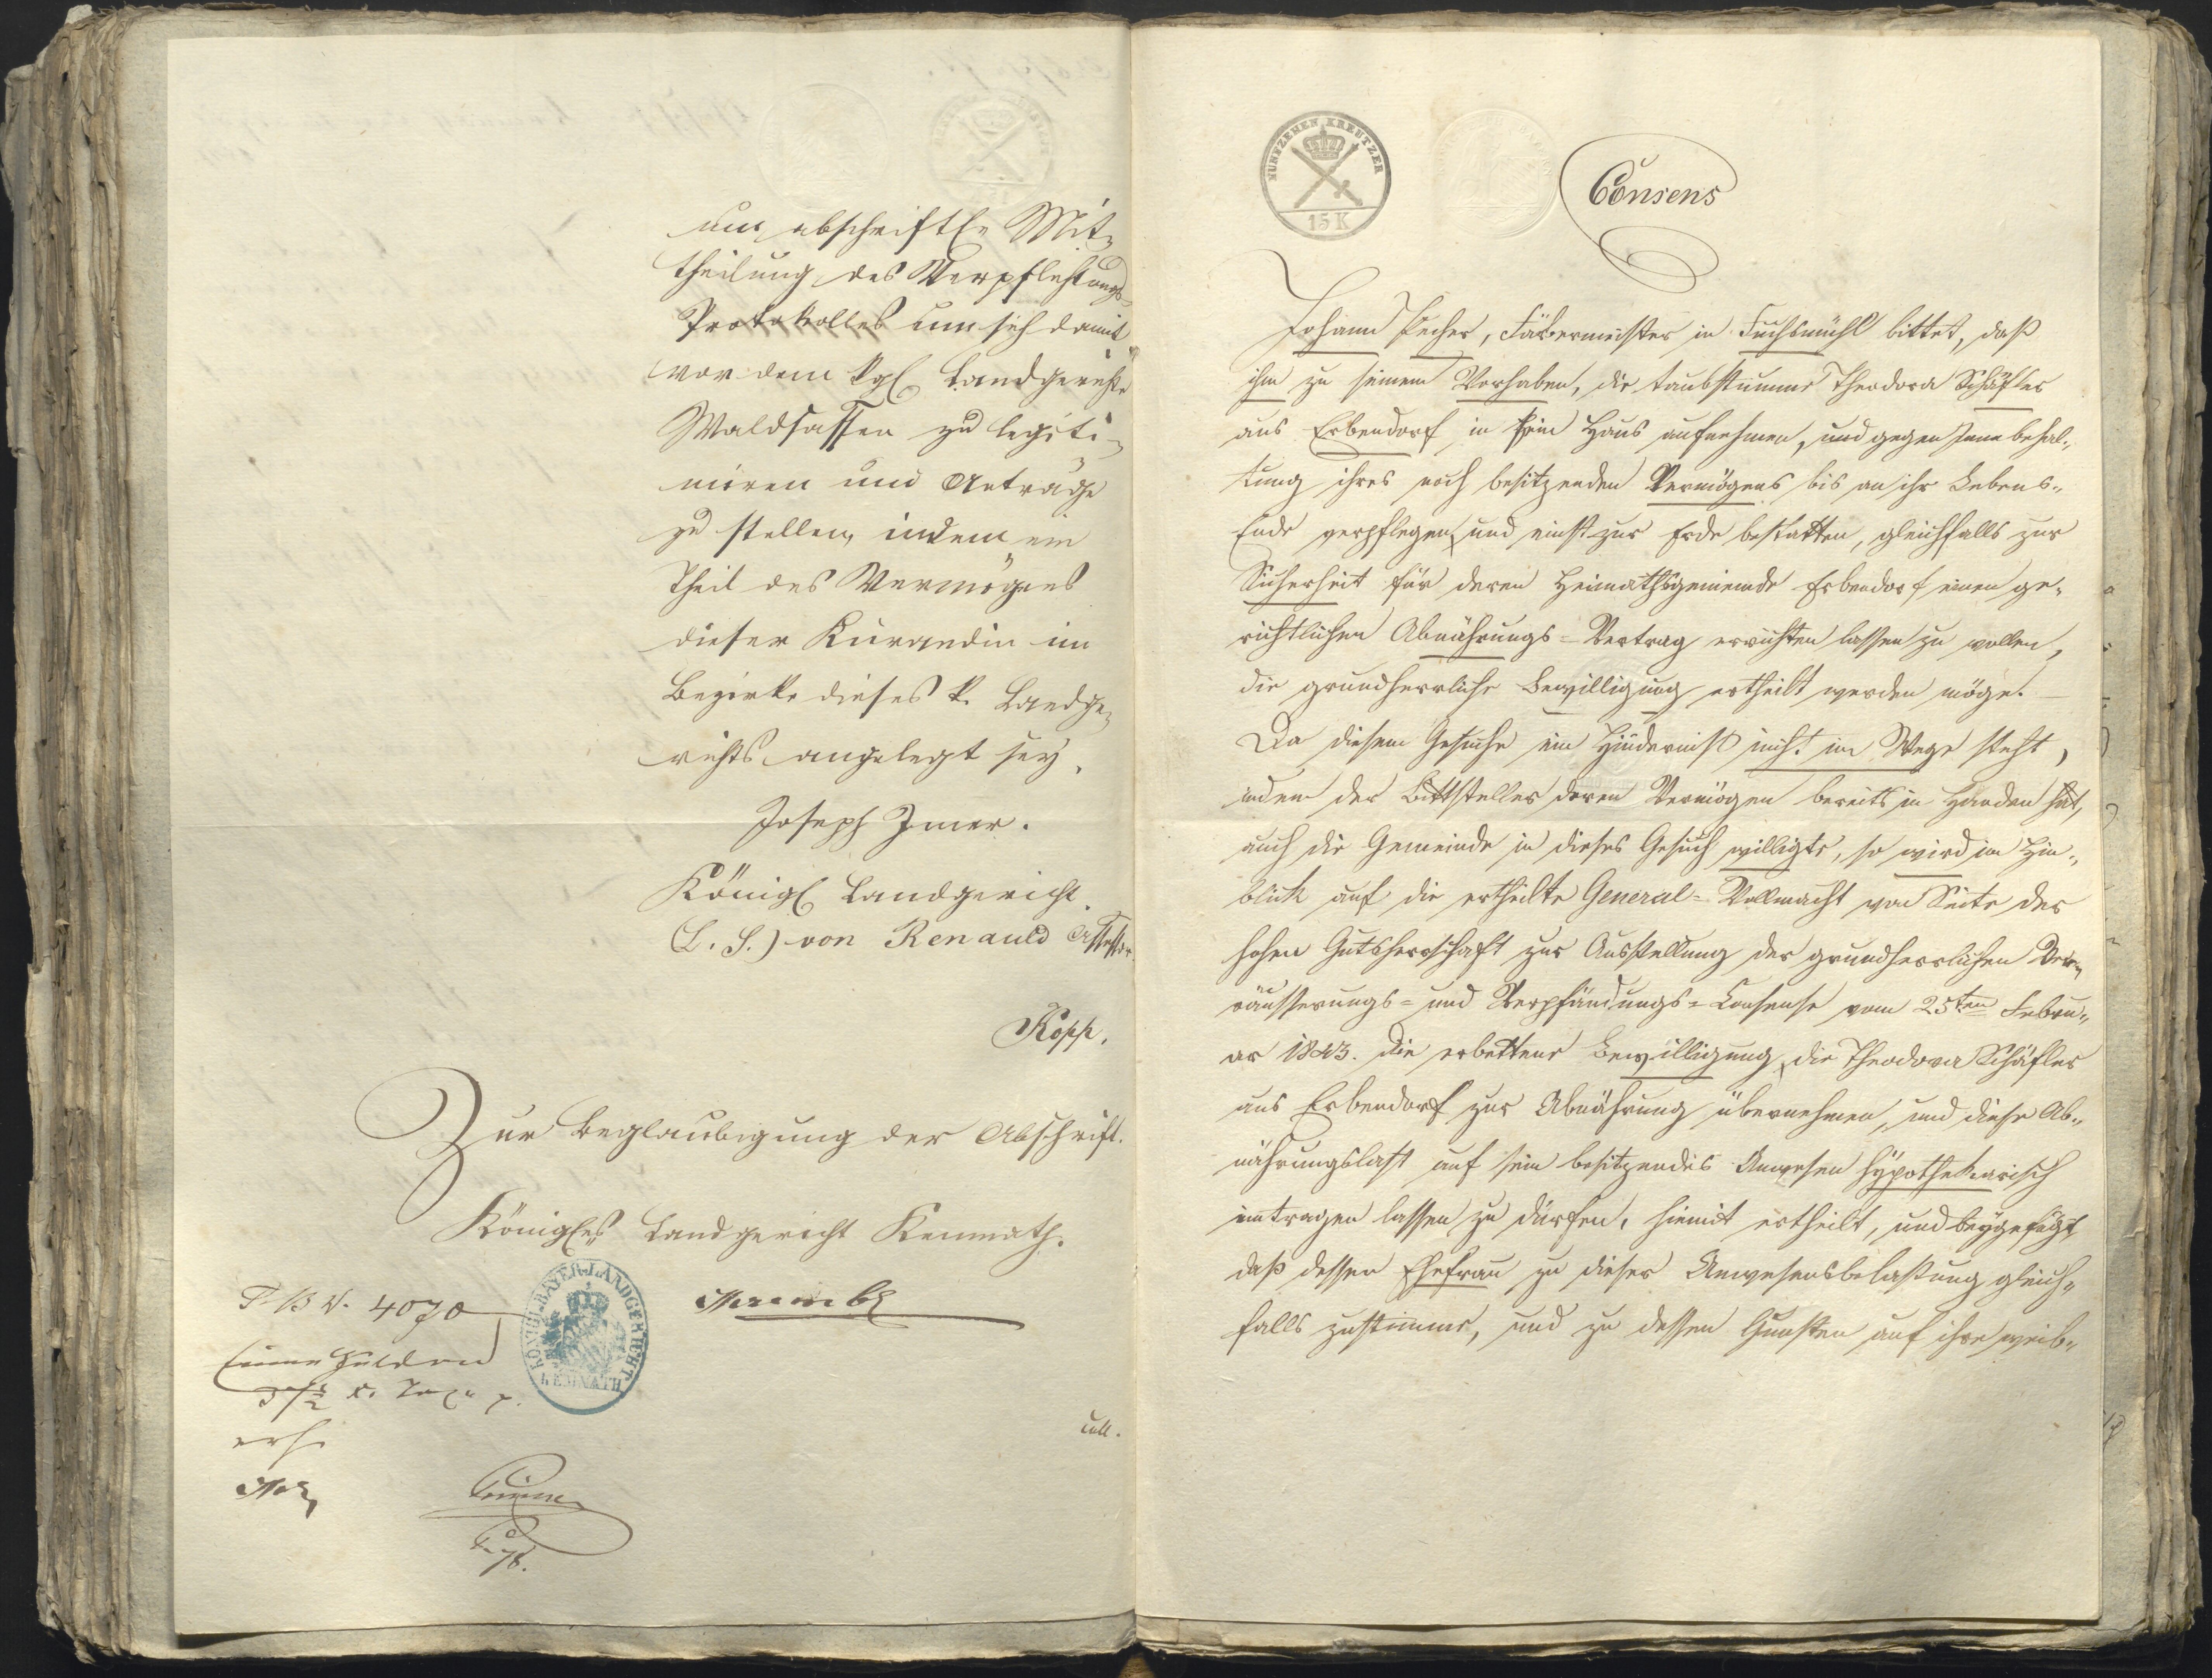 um abschriftle Mit-
theilung des Verpflichtungs-
Protokolles um sich damit
vor dem kgl. Landgerichte
Waldsassen zu legiti-
miren und Anträge
zu stellen, indem ein
Theil des Vermögens
dieser Kurandin im
Bezirke dieses k. Landge-
richts angelegt sey.
Joseph Zmer.
Königl Landgericht.
(L. S.) von Renauld Assessor
Kopp.
Zur Beglaubigung der Abschrift.
Königles Landgericht Kemnath.
4070
KÖNIGL. BAYER. LANDGERICHT KEMNATH
Einen Gulden
3 1/2 x. Taxe
coll.
FUNFZEHEN KREUTZER
15 K
Consens
Johann Pecher, Färbermeister in Fuchsmühl bittet, daß
ihm zu seinem Vorhaben, die taubstumme Theodora Schäfler
aus Erbendorf in sein Haus aufnehmen, und gegen Innebehal-
tung ihres noch besitzenden Vermögens bis an ihr Lebens-
Ende verpflegen, und einst zur Erde bestatten, gleichfalls zur
Sicherheit für deren Heimathsgemeinde Erbendorf einen ge-
richtlichen Abnährungs-Vertrag errichten lassen zu wollen,
die grundherrliche Bewilligung ertheilt werden möge.
Da diesem Gesuche ein Hinderniß nicht im Wege steht,
indem der Bittsteller deren Vermögen bereits in Handen hat,
auch die Gemeinde in dieses Gesuch willigte, so wird im Hin-
blick auf die ertheilte General-Vollmacht von Seite der
hohen Gutsherrschaft zur Ausstellung der grundherrlichen Ver-
äusserungs- und Verpfändungs-Consense vom 25ten Febru-
ar 1843. die erbettene Bewilligung, die Theodora Schäfler
aus Erbendorf zur Abnährung übernehmen, und diese Ab-
nährungslast auf sein besitzendes Anwesen hypothekarisch
eintragen lassen zu dürfen, hiemit ertheilt, und beygefügt
daß dessen Ehefrau zu dieser Anwesensbelastung gleich-
falls zustimme, und zu dessen Gunsten auf ihre weib-